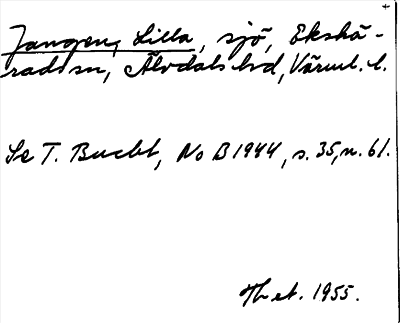 Jangen, Lilla, sjö, Ekshä-
rads sn, Älvdals hd, Värml. l.
Se T. Bucht, No B 1944, s. 35, n. 61.
Th et. 1955.